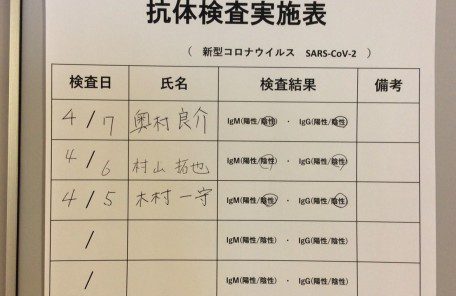 抗体検査実施表
（ 新型コロナウイルス SARS-CoV-2 ）
検査日 氏名 検査結果 備考
4/7 奥村良介 IgM(陽性/陰性) ・ IgG(陽性/陰性)
4/6 村山拓也 IgM(陽性/陰性) ・ IgG(陽性/陰性)
4/5 木村一守 IgM(陽性/陰性) ・ IgG(陽性/陰性)
/ IgM(陽性/陰性) ・ IgG(陽性/陰性)
/ IgM(陽性/陰性) ・ IgG(陽性/陰性)